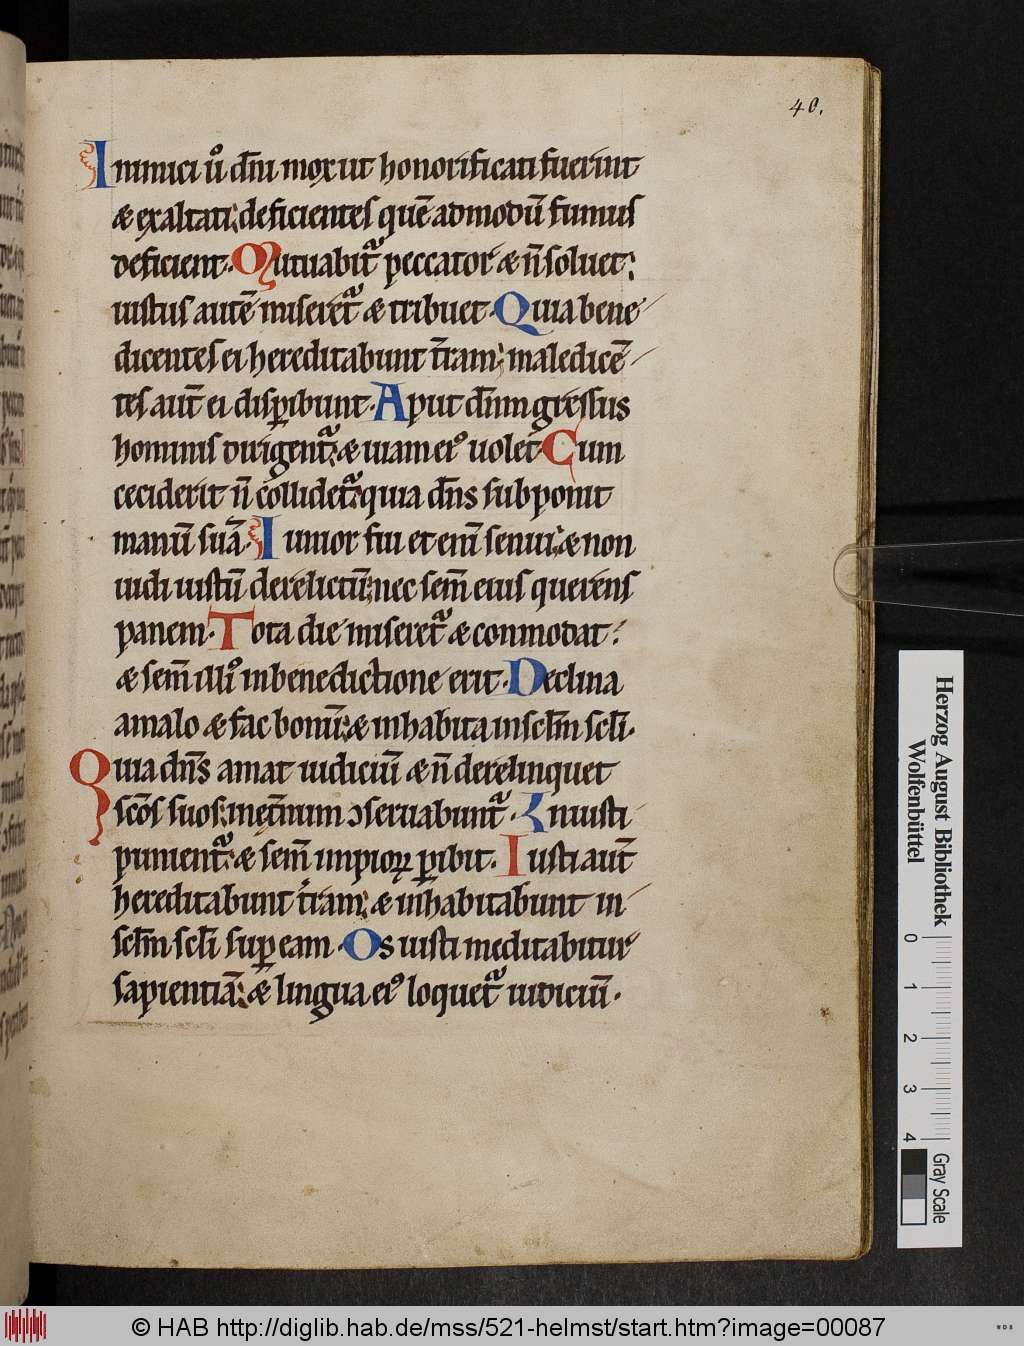 40.
Inimici ů dñi mox ut honorificati fuerint
& exaltati; deficientes quē admodū fumus
deficient. Mutuabit᷑ peccator & ñ soluet:
iustus autē miseret᷑ & tribuet. Quia bene
dicentes ei hereditabunt t̄ram; maledicē
tes aut̄ ei disꝑibunt. Aput dñm gressus
hominis dirigent᷑; & uiam ei᷒ uolet. Cum
ceciderit ñ collidet᷑; quia dñs subponit
manū suā. Iunior fui et eni̅ senui; & non
uidi iustū derelictū; nec sem̅ eius querens
panem. Tota die miseret᷑ & conmodat:
& sem̅ illi᷒ in benedictione erit. Declina
a malo & fac bonū; & inhabita in sclm̅ scli̅.
Quia dñs amat iudiciū & ñ derelinquet
sc̅os suos; in et̄rnum ↄseruabunt᷑. Iniusti
punient᷑; & sem̅ impioꝝ ꝑibit. Iusti aut̄
hereditabunt t̄ram; & inhabitabunt in
sclm̅ scli̅ suꝑ eam. Os iusti meditabitur
sapientiā; & lingua ei᷒ loquet᷑ iudiciū.
Herzog August Bibliothek
Wolfenbüttel
0 1 2 3 4
Gray Scale
© HAB http://diglib.hab.de/mss/521-helmst/start.htm?image=00087